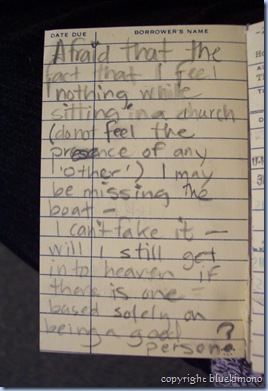 DATE DUE BORROWER'S NAME
Afraid that the
fact that I feel
nothing while
sitting in a church
(do not feel the
presence of any
'other') I may
be missing the
boat –
I can't take it –
will I still get
into heaven if
there is one –
based solely on
being a good
person?
copyright bluekimono